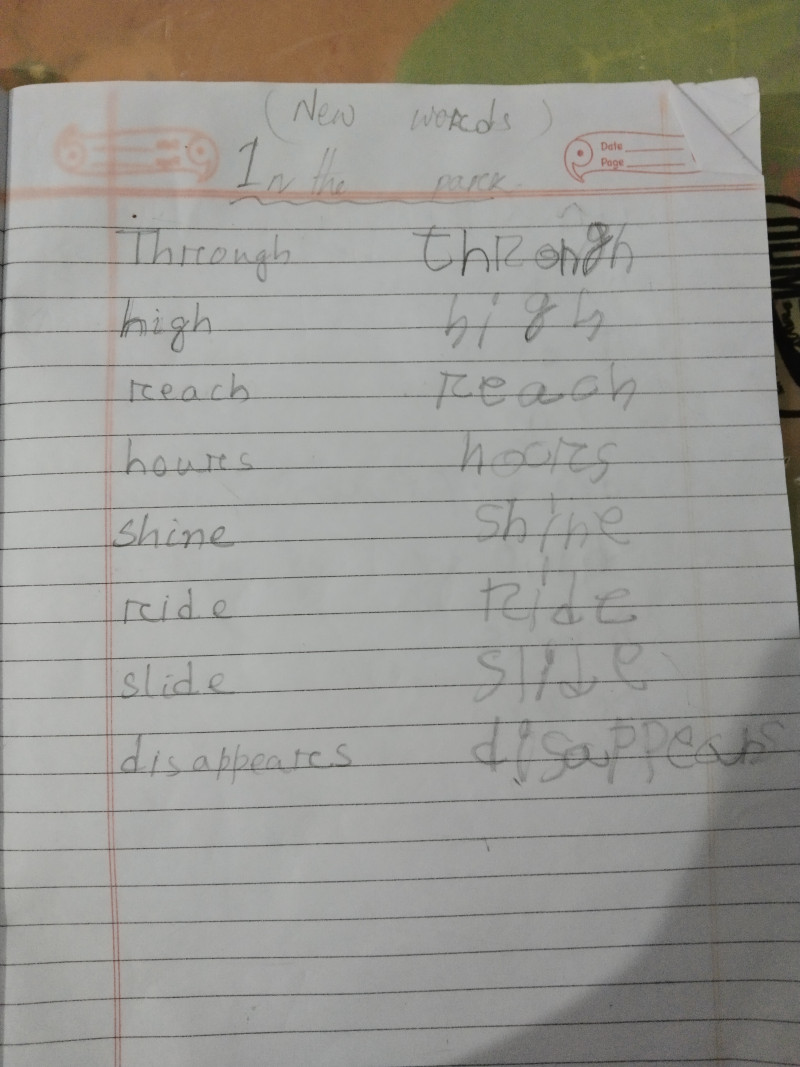 (New words)
Date
Page
In the park
Through through
high high
reach reach
hours hours
shine shine
ride ride
slide slide
disappears disappears